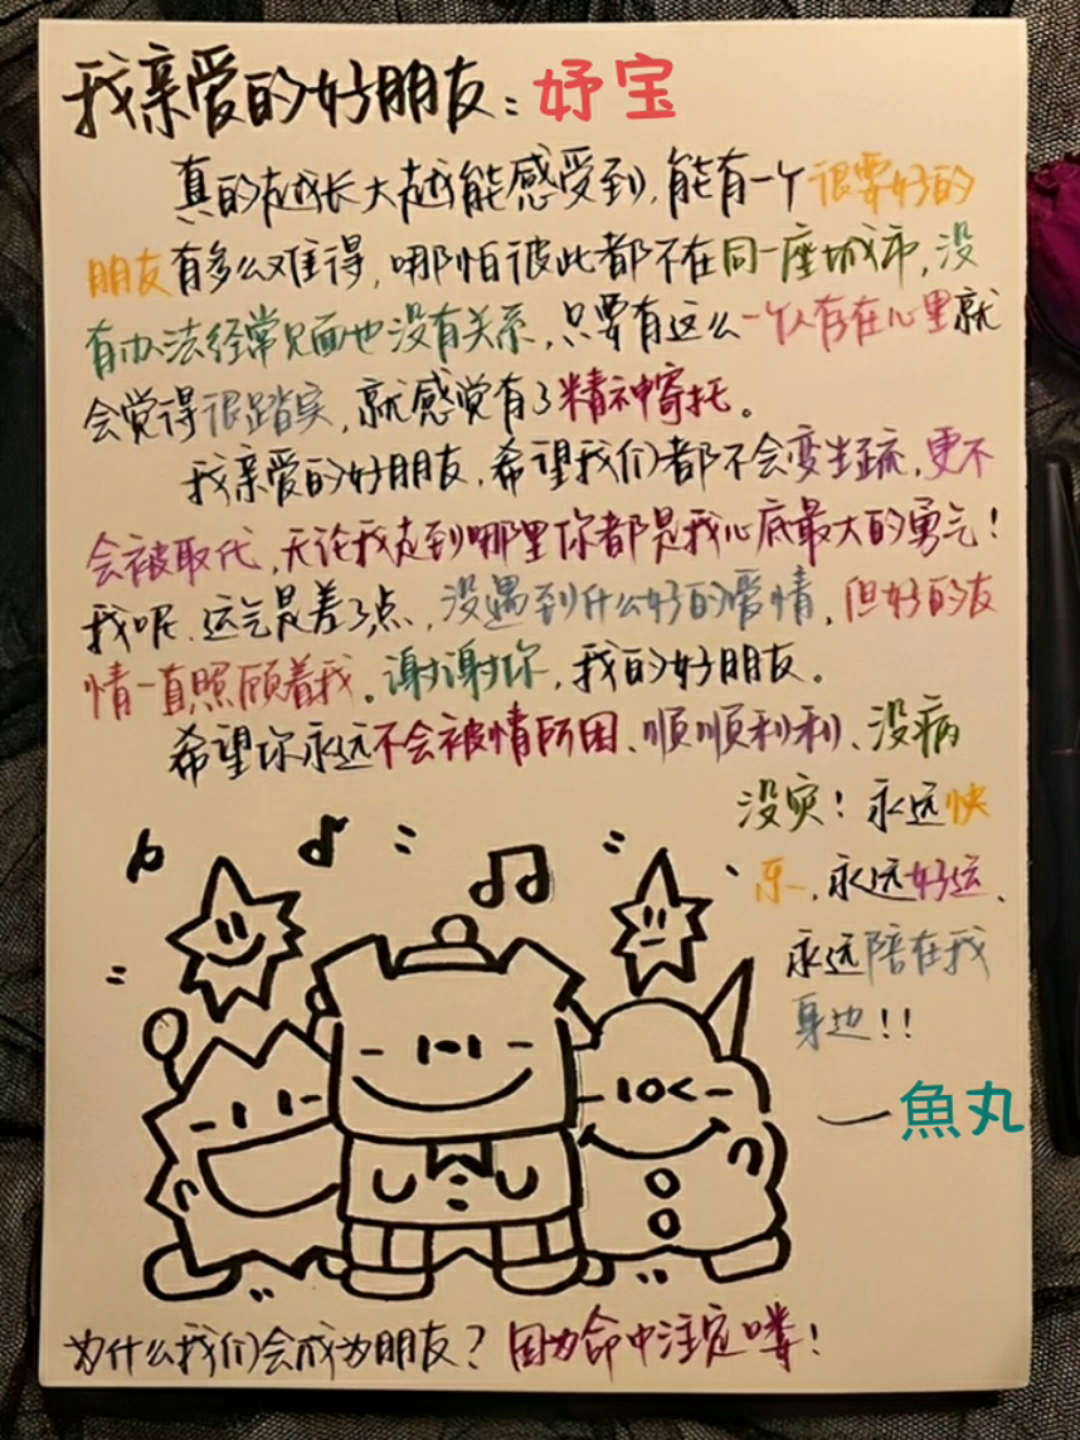 我亲爱的好朋友：妤宝
真的越长大越能感受到,能有一个很要好的
朋友有多么难得,哪怕彼此都不在同一座城市,没
有办法经常见面也没有关系,只要有这么一个人存在心里就
会觉得很踏实,就感觉有了精神寄托。
我亲爱的好朋友,希望我们都不会变生疏,更不
会被取代,无论我走到哪里你都是我心底最大的勇气!
我呢,运气是差了点,没遇到什么好的爱情,但好的友
情一直照顾着我。谢谢你,我的好朋友。
希望你永远不会被情所困、顺顺利利、没病
没灾!永远快
乐、永远好运、
永远陪在我
身边!!
一魚丸
为什么我们会成为朋友?因为命中注定喽!